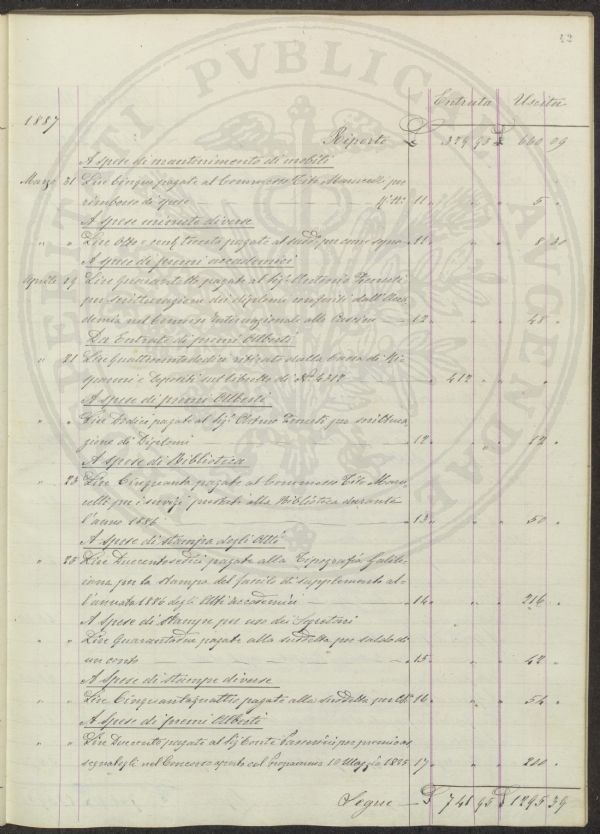 42
Entrata Uscita
1887
Riporto £ 329 95 £ 660 09
A spese di mantenimento di mobili
Marzo 31 Lire Cinque pagate al Commesso Tito Marucelli per
rimborso di spese N.° 11 " 5 "
A spese minute diverse
" " Lire Otto e cent. trenta pagate al sudd.° per 11 " 8 30
A spese di premi accademici
Aprile 19 Lire Quarantotto pagate al Sig.
per scritturazione dei diplomi conferiti dall'Acca
demia nel Concorso Internazionale alle Cascine 12 " 48 "
Da Entrata di premi Alberti
" 21 Lire Quattrocentododici ritirate dalla Cassa di Ri
sparmi e Depositi sul libretto di N.° 4317 " 412 " " "
A spese di premi Alberti
" " Lire Dodici pagate al Sig. per scrittura
zione di Diplomi 12 " 12 "
A spese di Biblioteca
" 23 Lire Cinquanta pagate al Commesso Tito Maru
celli per i servizi prestati alla Biblioteca durante
l'anno 1886 13 " 50 "
A spese di stampa degli Atti
" 25 Lire Duecentosedici pagate alla Tipografia Galile
iana per la stampa del fascic. di supplemento al
l'annata 1886 degli Atti accademici 14 " 216 "
A spese di stampe per uso dei Segretari
" " Lire Quarantadue pagate alla suddetta per saldo di
un conto 15 " 42 "
A spese di stampe diverse
" " Lire Cinquantaquattro pagate alla suddetta per 16 " 54 "
A spese di premi Alberti
" " Lire Duecento pagate al Sig. Conte Passerini per premio as
segnatogli nel Concorso aperto col Programma 10 Maggio 1885 17 " 200 "
Segue £ 741 95 £ 1295 39
PUBLICAE AUGENDAE